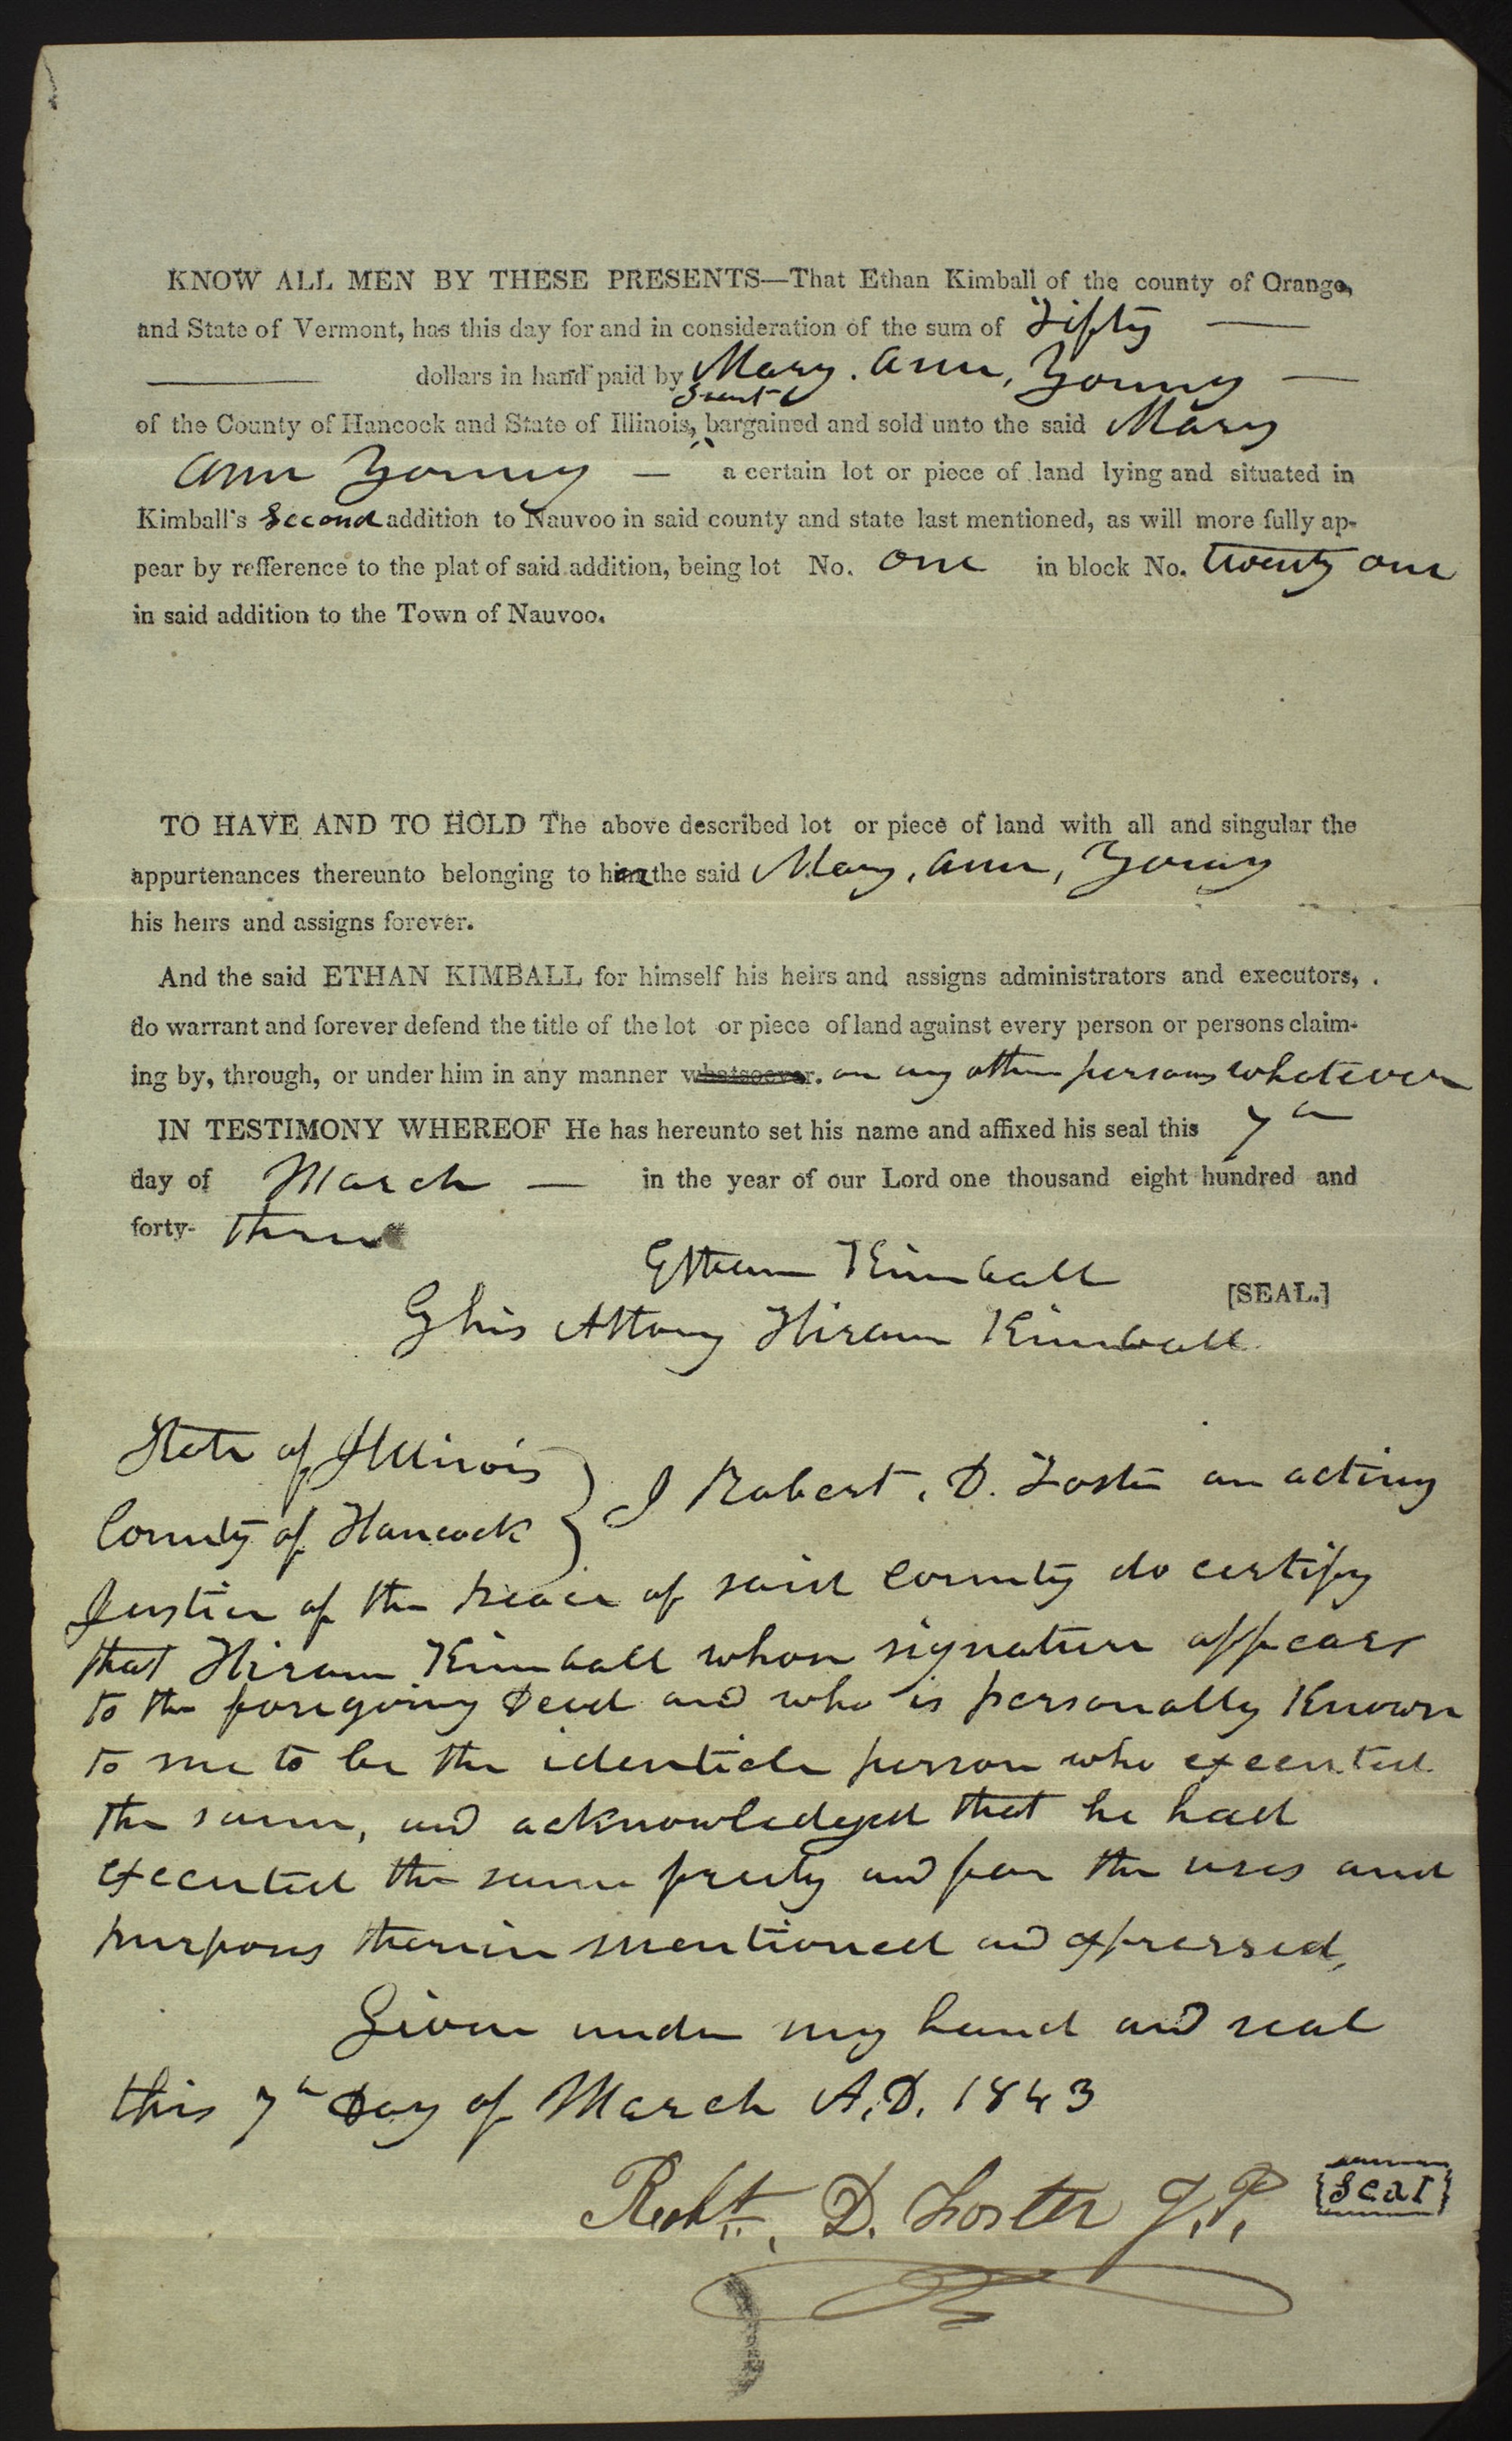 KNOW ALL MEN BY THESE PRESENTS—That Ethan Kimball of the county of Orange,
and State of Vermont, has this day for and in consideration of the sum of Fifty —
— dollars in hand paid by Mary. Ann, Young —
Grant
of the County of Hancock and State of Illinois, ^ bargained and sold unto the said Mary
Ann Young — a certain lot or piece of land lying and situated in
Kimball's Second addition to Nauvoo in said county and state last mentioned, as will more fully ap-
pear by refference to the plat of said addition, being lot No. one in block No. twenty one
in said addition to the Town of Nauvoo.
TO HAVE AND TO HOLD The above described lot or piece of land with all and singular the
appurtenances thereunto belonging to her the said Mary, Ann, Young
his heirs and assigns forever.
And the said ETHAN KIMBALL for himself his heirs and assigns administrators and executors,
do warrant and forever defend the title of the lot or piece of land against every person or persons claim-
ing by, through, or under him in any manner whatsoever. or any other persons whatever
IN TESTIMONY WHEREOF He has hereunto set his name and affixed his seal this 7th
day of March — in the year of our Lord one thousand eight hundred and
forty- three
Ethan Kimball
[SEAL.]
By his Attorny Hiram Kimball
State of Illinois
County of Hancock } I Robert. D. Foster an acting
Justice of the peace of said County do certify
that Hiram Kimball whose signature appears
to the foregoing Deed and who is personally Known
to me to be the identicle person who executed
the same, and acknowledged that he had
executed the same freely and for the uses and
purposes therein mentioned and expressed,
Given under my hand and seal
this 7th Day of March A.D. 1843
Robt. D. Foster J.P.
Seal